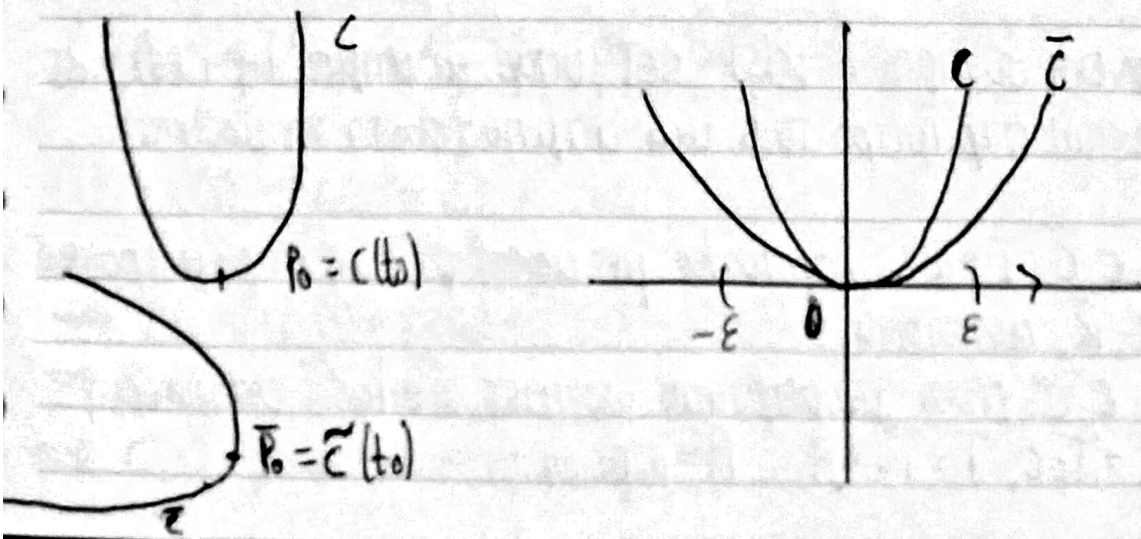 C
P₀ = C(t₀)
P̄₀ = C̃(t₀)
c̄
C C̄
-ε 0 ε